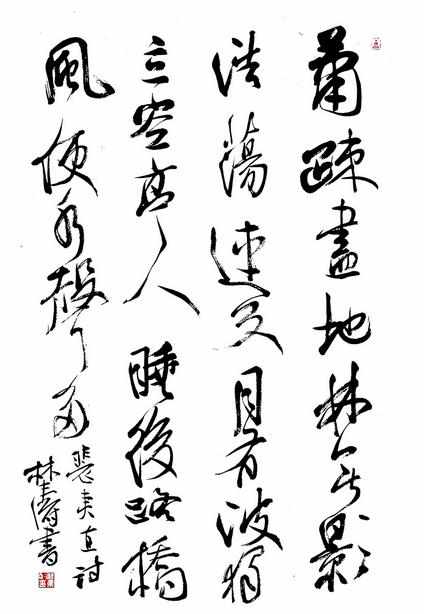 蕭疎盡地林無影
浩蕩連天月有波獨
立空亭人睡後路橋
風便水聲多
裴夷直詩
林濤書